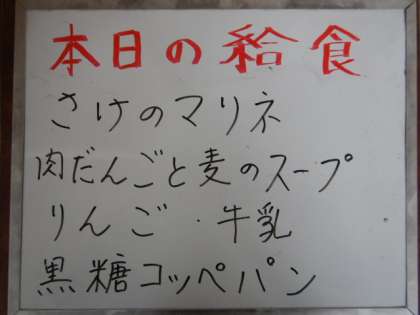 本日の給食
さけのマリネ
肉だんごと麦のスープ
りんご・牛乳
黒糖コッペパン